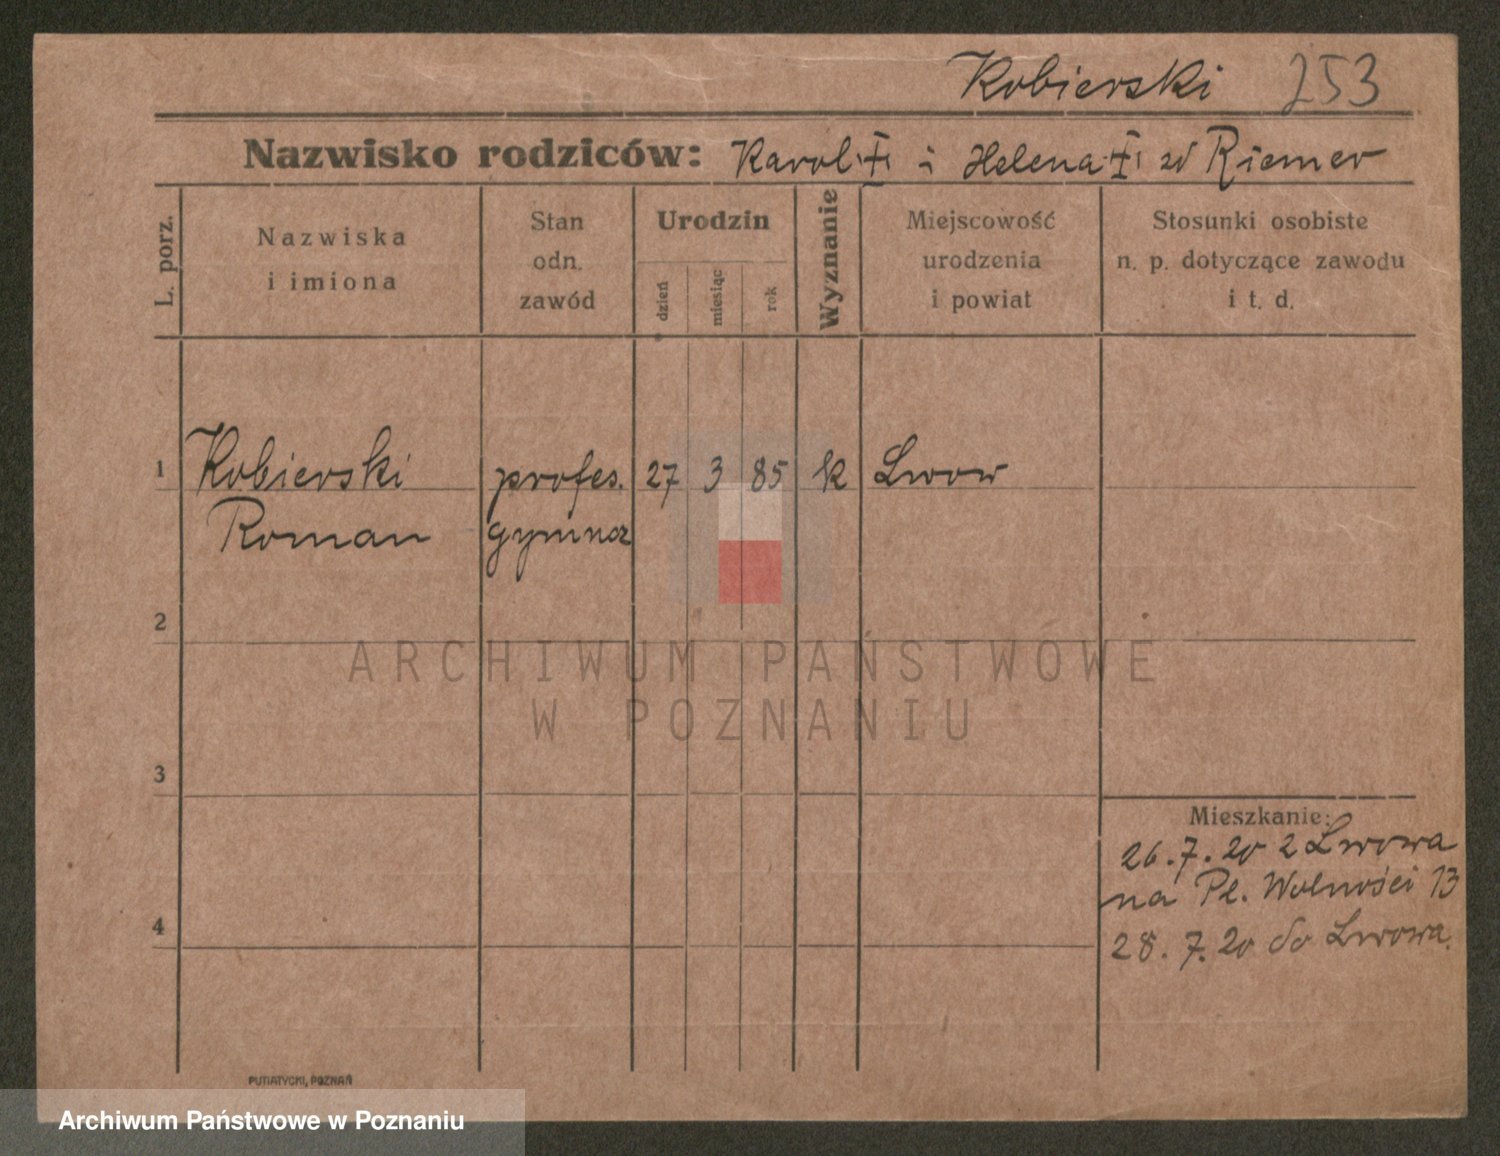 Kobierski 253
Nazwisko rodziców: Karol i Helena zd Riemer
L. porz.
Nazwiska
i imiona
Stan
odn.
zawód
Urodzin
dzień
miesiąc
rok
Wyznanie
Miejscowość
urodzenia
i powiat
Stosunki osobiste
n. p. dotyczące zawodu
i t. d.
1 Kobierski profes. 27 3 85 k Lwow
Roman gymnaz
2
ARCHIWUM PAŃSTWOWE
W POZNANIU
3
Mieszkanie:
26.7.20 z Lwowa
na Pl. Wolności 13
4
28.7.20 do Lwowa.
PUTIATYCKI, POZNAŃ
Archiwum Państwowe w Poznaniu